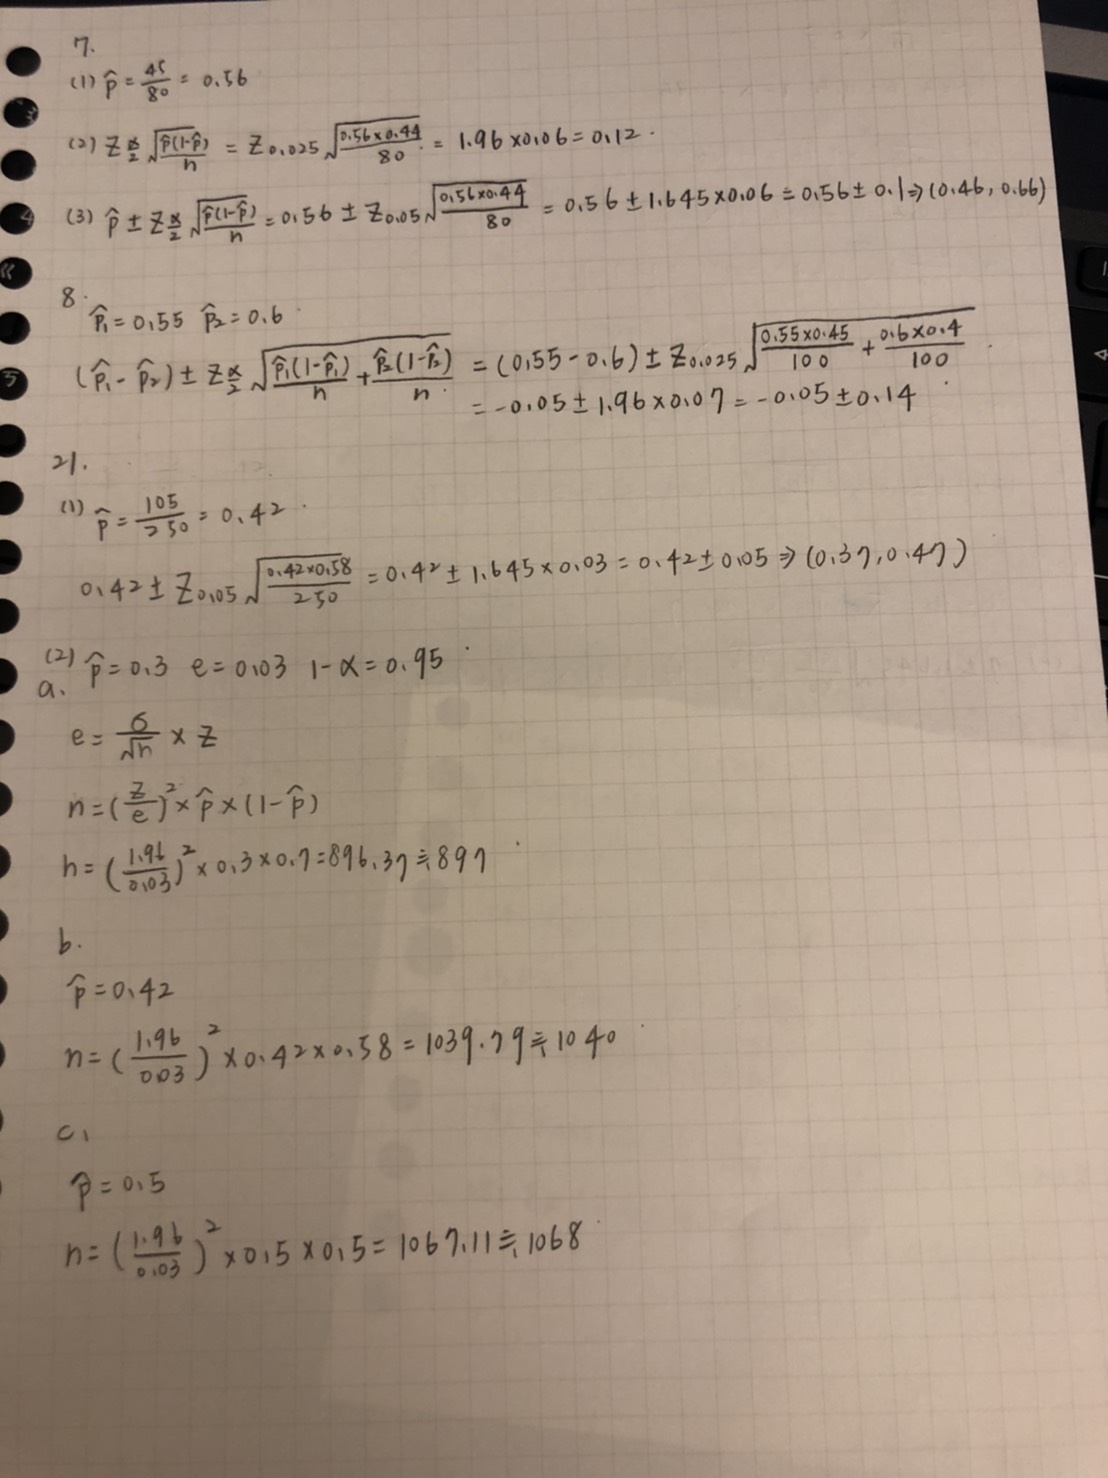 7.
(1) p̂ = 45/80 = 0.56
(2) Z α/2 √(p̂(1-p̂)/n) = Z0.025 √(0.56×0.44/80) = 1.96×0.06 = 0.12
(3) p̂ ± Z α/2 √(p̂(1-p̂)/n) = 0.56 ± Z0.05 √(0.56×0.44/80) = 0.56 ± 1.645×0.06 = 0.56 ± 0.1 ⇒ (0.46, 0.66)
8.
p̂1 = 0.55 p̂2 = 0.6
(p̂1 - p̂2) ± Z α/2 √(p̂1(1-p̂1)/n + p̂2(1-p̂2)/n) = (0.55-0.6) ± Z0.025 √(0.55×0.45/100 + 0.6×0.4/100)
= -0.05 ± 1.96×0.07 = -0.05 ± 0.14
21.
(1) p̂ = 105/250 = 0.42
0.42 ± Z0.05 √(0.42×0.58/250) = 0.42 ± 1.645×0.03 = 0.42 ± 0.05 ⇒ (0.37, 0.47)
(2) p̂ = 0.3 e = 0.03 1-α = 0.95
a.
e = σ/√n × Z
n = (Z/e)² × p̂ × (1-p̂)
n = (1.96/0.03)² × 0.3 × 0.7 = 896.37 ≒ 897
b.
p̂ = 0.42
n = (1.96/0.03)² × 0.42 × 0.58 = 1039.79 ≒ 1040
c.
p̂ = 0.5
n = (1.96/0.03)² × 0.5 × 0.5 = 1067.11 ≒ 1068